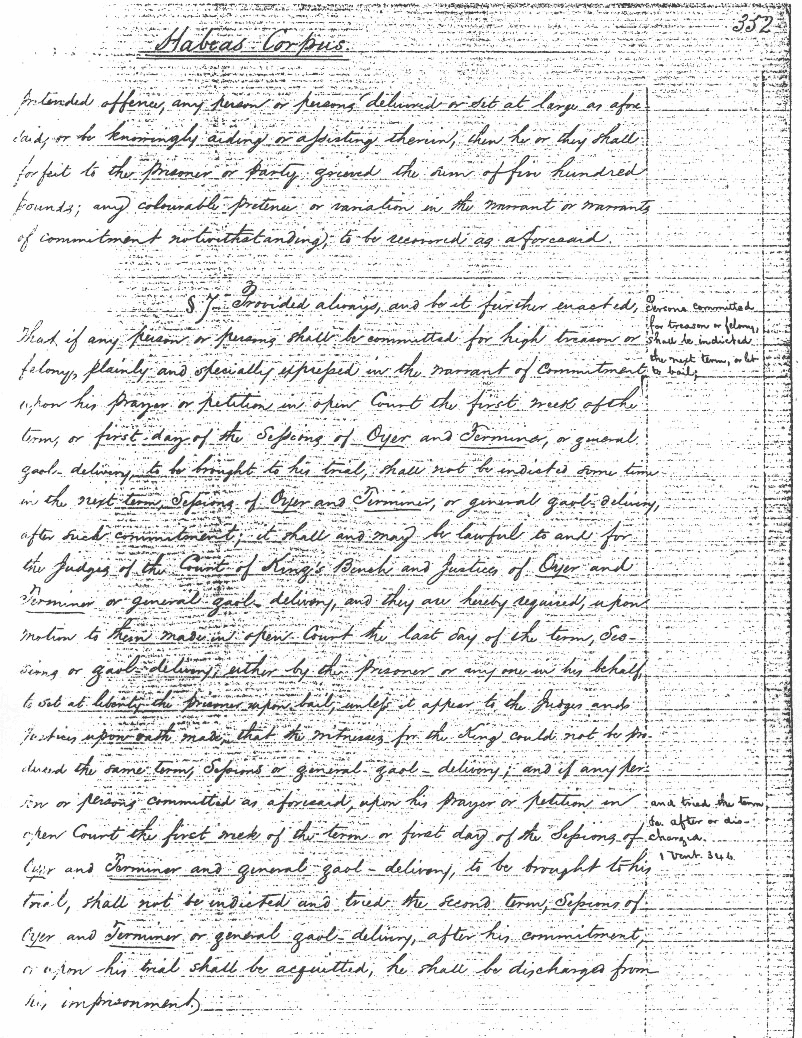 352
Habeas Corpus.
pretended offence, any person or persons delivered or set at large as afore
said, or be knowingly aiding or assisting therein, then he or they shall
forfeit to the prisoner or party grieved the sum of five hundred
pounds; any colourable pretence or variation in the warrant or warrants
of commitment notwithstanding, to be recovered as aforesaid.
§ 7. Provided always, and be it further enacted,
That if any person or persons shall be committed for high treason or
felony, plainly and specially expressed in the warrant of commitment
upon his prayer or petition in open Court the first week of the
term, or first day of the Sessions of Oyer and Terminer, or general
gaol-delivery, to be brought to his trial, shall not be indicted some time
in the next term, Sessions of Oyer and Terminer, or general gaol-delivery,
after such commitment; it shall and may be lawful to and for
the Judges of the Court of King's Bench and Justices of Oyer and
Terminer or general gaol-delivery, and they are hereby required, upon
motion to them made in open Court the last day of the term, Ses-
sions or gaol-delivery, either by the prisoner or any one in his behalf,
to set at liberty the prisoner upon bail, unless it appear to the Judges and
Justices upon oath made, that the witnesses for the King could not be pro-
duced the same term, Sessions or general gaol-delivery; and if any per-
son or persons committed as aforesaid, upon his prayer or petition in
open Court the first week of the term or first day of the Sessions of
Oyer and Terminer and general gaol-delivery, to be brought to his
trial, shall not be indicted and tried the second term, Sessions of
Oyer and Terminer or general gaol-delivery, after his commitment,
or upon his trial shall be acquitted, he shall be discharged from
his imprisonment.
Persons committed
for treason or felony,
shall be indicted
the next term, or let
to bail;
and tried the term
&c. after or dis-
charged.
1 Vent. 346.